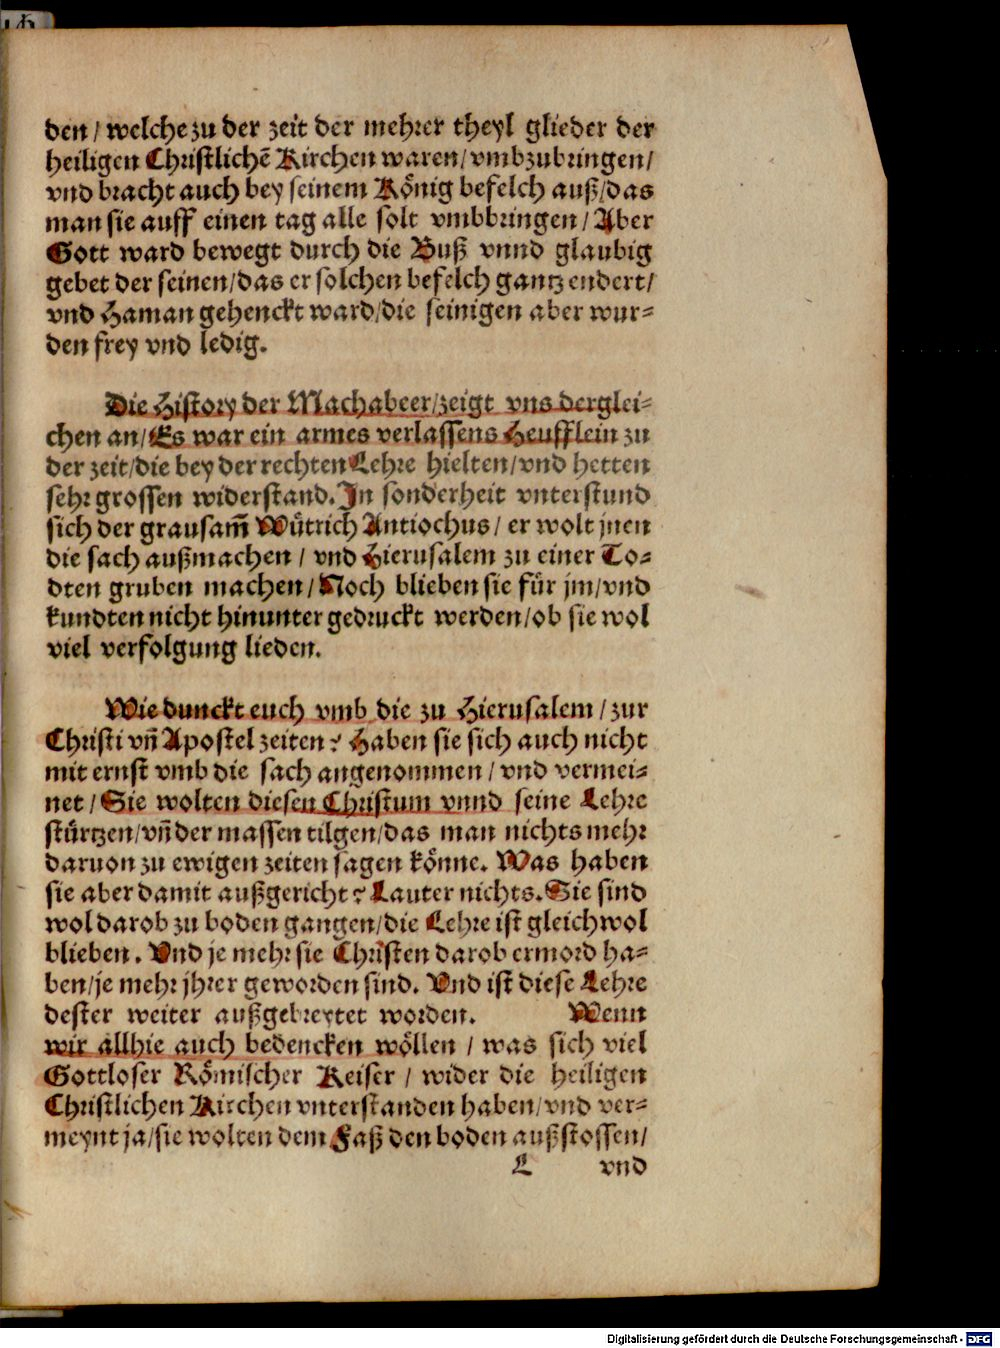 den / welche zu der zeit der mehrer theyl glieder der
heiligen Christlichē Kirchen waren / vmbzubringen /
vnd bracht auch bey seinem König befelch auß / das
man sie auff einen tag alle solt vmbbringen / Aber
Gott ward bewegt durch die Buß vnnd glaubig
gebet der seinen / das er solchen befelch gantz endert /
vnd Haman gehenckt ward / die seinigen aber wur-
den frey vnd ledig.
Die History der Machabeer / zeigt vns derglei-
chen an / Es war ein armes verlassens Heufflein zu
der zeit / die bey der rechten Lehre hielten / vnd hetten
sehr grossen widerstand. In sonderheit vnterstund
sich der grausam̄ Wütrich Antiochus / er wolt jnen
die sach außmachen / vnd Hierusalem zu einer To-
dten gruben machen / Noch blieben sie für jm / vnd
kundten nicht hinunter gedruckt werden / ob sie wol
viel verfolgung lieden.
Wie dunckt euch vmb die zu Hierusalem / zur
Christi vn̄ Apostel zeiten? Haben sie sich auch nicht
mit ernst vmb die sach angenommen / vnd vermei-
net / Sie wolten diesen Christum vnnd seine Lehre
stürtzen / vn̄ der massen tilgen / das man nichts mehr
daruon zu ewigen zeiten sagen könne. Was haben
sie aber damit außgericht? Lauter nichts. Sie sind
wol darob zu boden gangen / die Lehre ist gleichwol
blieben. Vnd je mehr sie Christen darob ermord ha-
ben / je mehr jhrer geworden sind. Vnd ist diese Lehre
dester weiter außgebreytet worden. Wenn
wir allhie auch bedencken wöllen / was sich viel
Gottloser Römischer Keiser / wider die heiligen
Christlichen Kirchen vnterstanden haben / vnd ver-
meynt ja / sie wolten dem Faß den boden außstossen /
L vnd
Digitalisierung gefördert durch die Deutsche Forschungsgemeinschaft - DFG